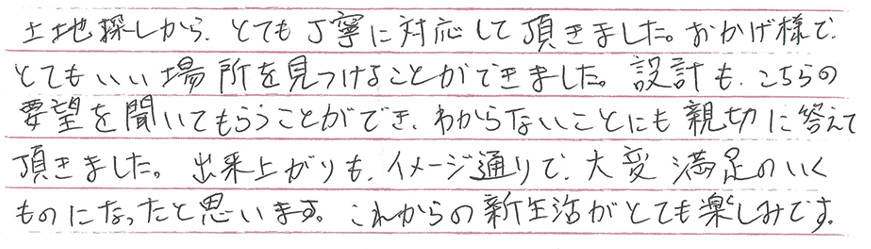 土地探しから、とても丁寧に対応して頂きました。おかげ様で、
とてもいい場所を見つけることができました。設計も、こちらの
要望を聞いてもらうことができ、わからないことにも親切に答えて
頂きました。出来上がりも、イメージ通りで、大変満足のいく
ものになったと思います。これからの新生活がとても楽しみです。